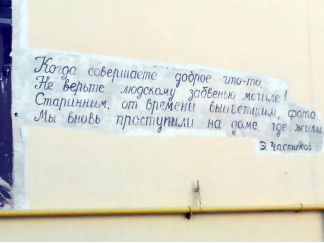 Когда совершаете доброе что-то,
Не верьте людскому забвенью могиле!
Старинным, от времени выцветшим, фото
Мы вновь проступили на доме, где жили.
Э. Частиков